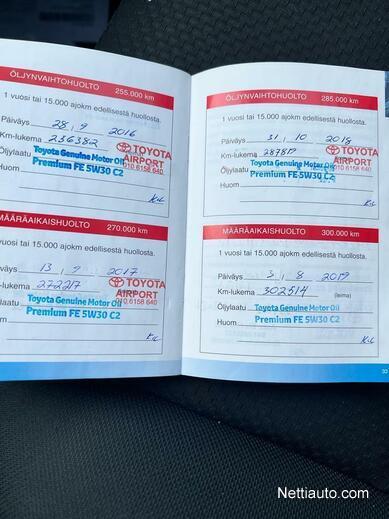 ÖLJYNVAIHTOHUOLTO 255.000 km
1 vuosi tai 15.000 ajokm edellisestä huollosta.
Päiväys 28 , 9 2016
Km-lukema 236382
TOYOTA
AIRPORT
010 6158 640
Öljylaatu Toyota Genuine Motor Oil
Premium FE 5W30 C2
Huom
K-L
MÄÄRÄAIKAISHUOLTO 270.000 km
vuosi tai 15.000 ajokm edellisestä huollosta.
väys 13 , 9 2017
-lukema 272217
TOYOTA
AIRPORT
010 6158 640
laatu Toyota Genuine Motor Oil
Premium FE 5W30 C2
K-L
ÖLJYNVAIHTOHUOLTO 285.000 km
1 vuosi tai 15.000 ajokm edellisestä huollosta.
Päiväys 31 , 10 2018
Km-lukema 287819
TOYOTA
AIRPORT
010 6158 640
Öljylaatu Toyota Genuine Motor Oil
Premium FE 5W30 C2
Huom
K-L
MÄÄRÄAIKAISHUOLTO 300.000 km
1 vuosi tai 15.000 ajokm edellisestä huollosta.
Päiväys 3 , 8 2019
Km-lukema 302514
(leima)
Öljylaatu Toyota Genuine Motor Oil
Huom Premium FE 5W30 C2
K-L
33
Nettiauto.com